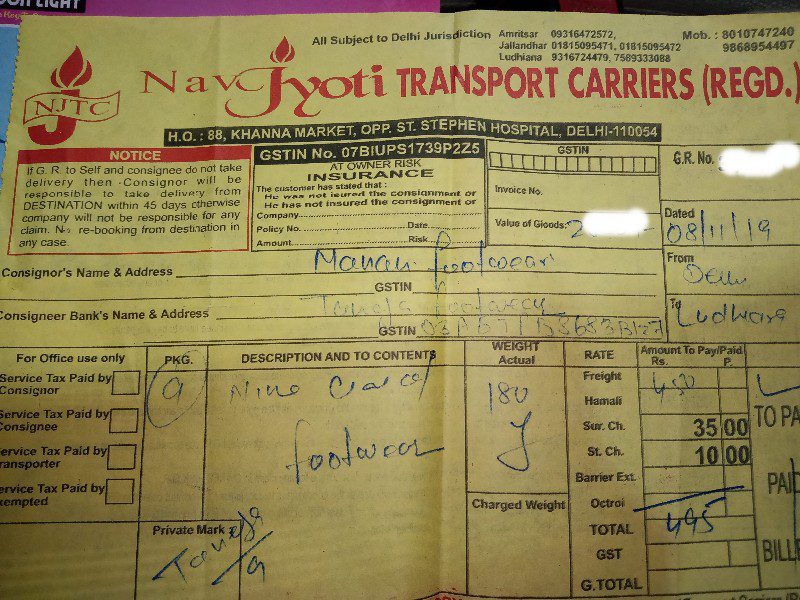 All Subject to Delhi Jurisdiction
Amritsar 09316472572,
Jallandhar 01815095471, 01815095472
Ludhiana 9316724479, 7589333088
Mob. : 8010747240
9868954497
NJTC
Nav Jyoti TRANSPORT CARRIERS (REGD.)
H.O. : 88, KHANNA MARKET, OPP. ST. STEPHEN HOSPITAL, DELHI-110054
NOTICE
If G. R. to Self and consignee do not take
delivery then Consignor will be
responsible to take delivery from
DESTINATION within 45 days otherwise
company will not be responsible for any
claim. No re-booking from destination in
any case.
GSTIN No. 07BIUPS1739P2Z5
AT OWNER RISK
INSURANCE
The customer has stated that :
He was not insured the consignment or
He has not insured the consignment or
Company
Policy No. Date
Amount Risk
GSTIN
Invoice No.
Value of Goods: 2
G.R. No.
Dated
08/11/19
From
Delhi
To
Ludhiana
Consignor's Name & Address Manan footwear
GSTIN
Consigneer Bank's Name & Address Taneja footwear
GSTIN
For Office use only
Service Tax Paid by
Consignor
Service Tax Paid by
Consignee
Service Tax Paid by
Transporter
Service Tax Paid by
Exempted
PKG.
9
DESCRIPTION AND TO CONTENTS
Nine
footwear
Private Mark
Taneja
9
WEIGHT
Actual
180
Charged Weight
RATE
Amount To Pay/Paid
Rs. P.
Freight 450
Hamali
Sur. Ch. 35 00
St. Ch. 10 00
Barrier Ext.
Octroi
TOTAL 495
GST
G.TOTAL
TO PA
PAI
BILLE